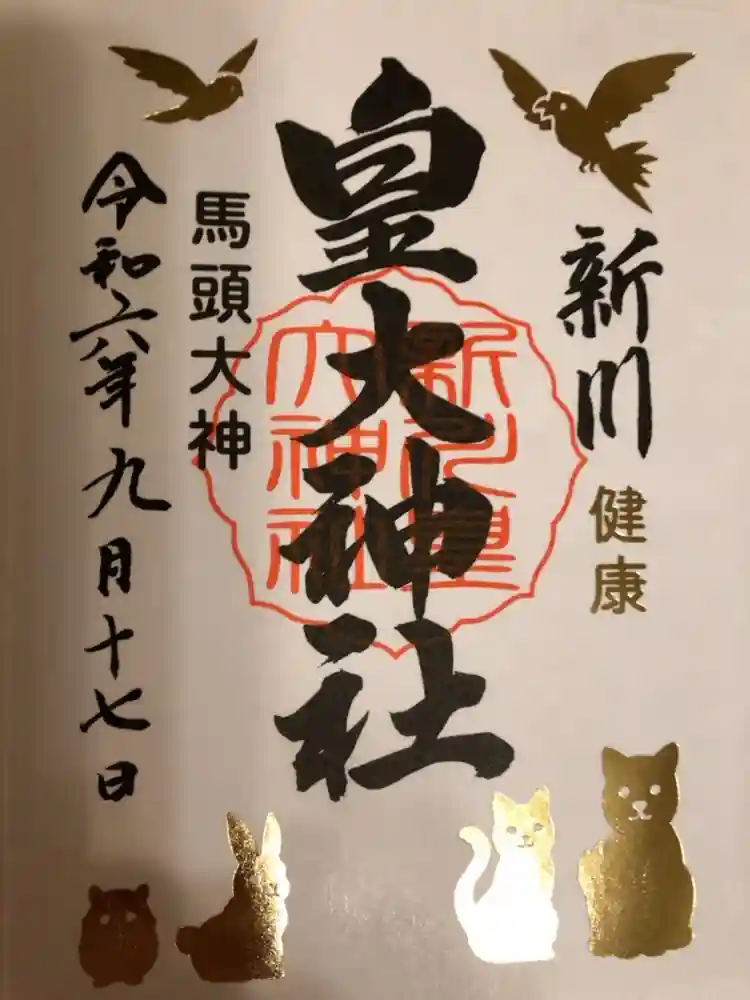 新川
健康
皇大神社
新川皇
大神社
馬頭大神
令和六年九月十七日